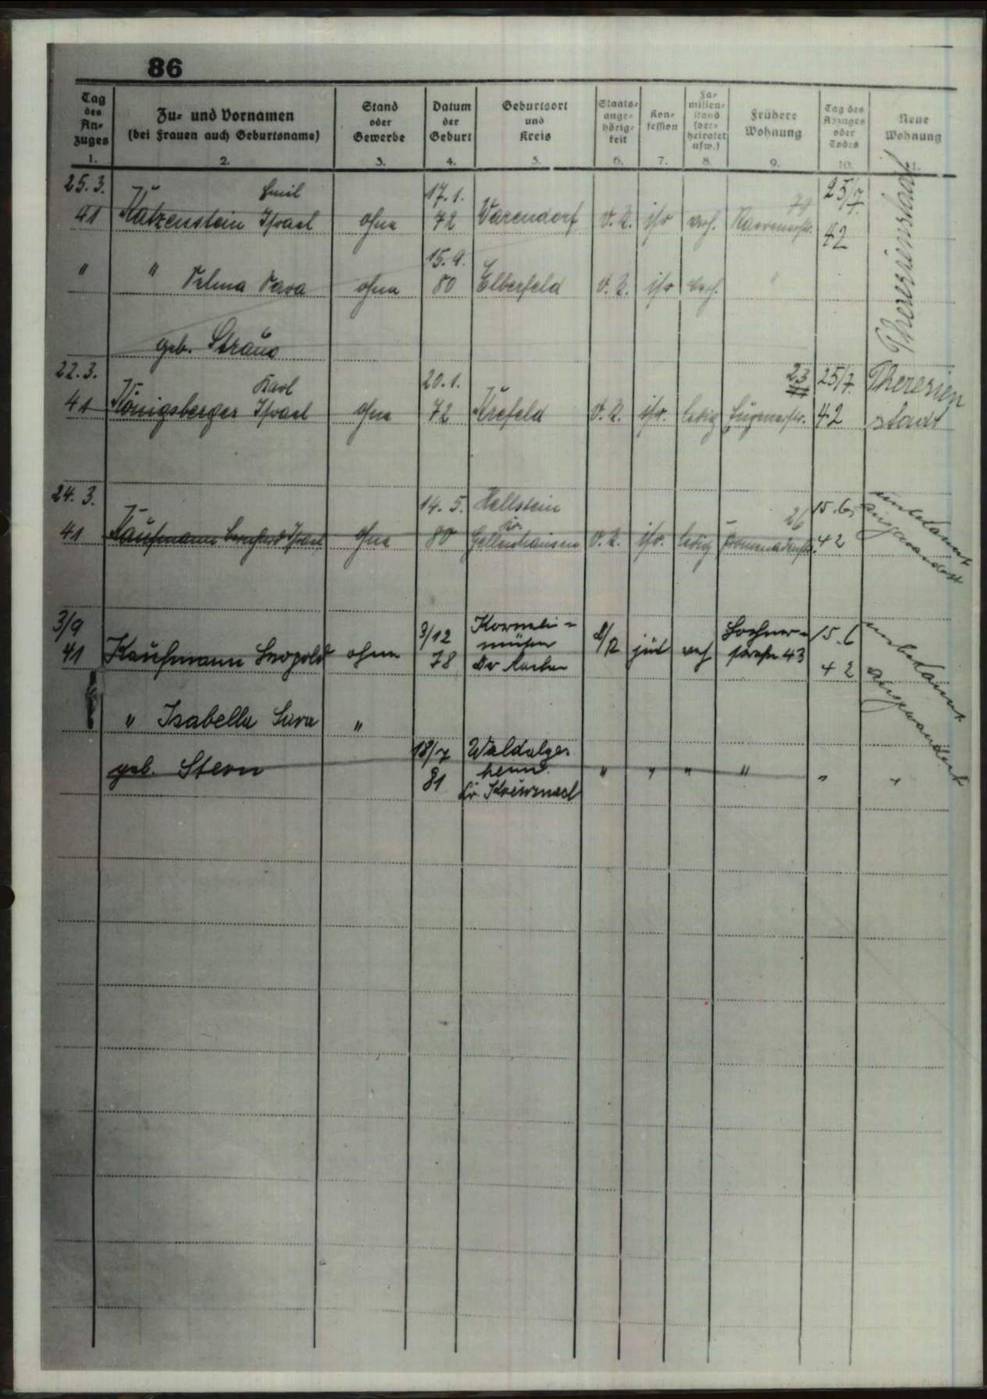 86
Tag des An- zuges
Zu- und Vornamen (bei Frauen auch Geburtsname)
Stand oder Gewerbe
Datum der Geburt
Geburtsort und Kreis
Staats- ange- hörig- keit
Kon- fession
Fa- milien- stand (ver- heiratet usw.)
Frühere Wohnung
Tag des Abzuges oder Todes
Neue Wohnung
1. 2. 3. 4. 5. 6. 7. 8. 9. 10. 11.
25.3. Emil 17.1. 25/7.
41 Katzenstein Israel ohne 72 Warendorf D.R. isr verh. 42 Theresienstadt
15.9.
" " Selma Sara ohne 80 Elberfeld D.R. isr verh. "
geb. Straus
22.3. Karl 20.1. 23 25/7. Theresien
41 Königsberger Israel ohne 72 Krefeld D.R. isr. ledig 42 stadt
24.3. 14.5. Hellstein 26 15.6. unbekannt
41 Kaufmann Bernhard Israel ohne 80 Kr. Gellnhausen D.R. isr. ledig Promenadenstr. 42 ausgewandert
3/9 3/12 Korneli= D/ Lochner= 15.6 unbekannt
41 Kaufmann Leopold ohne 78 münster Kr Aachen R jüd verh straße 43 42 ausgewandert
" Isabella Sara "
18/7 Waldalges
geb. Stern 81 heim " " " " " "
Kr. Kreuznach